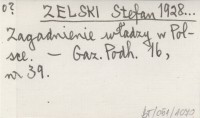 o?
ZELSKI Stefan 1928...
Zagadnienie władzy w Pol-
sce. — Gaz. Podh. 16,
nr 39.